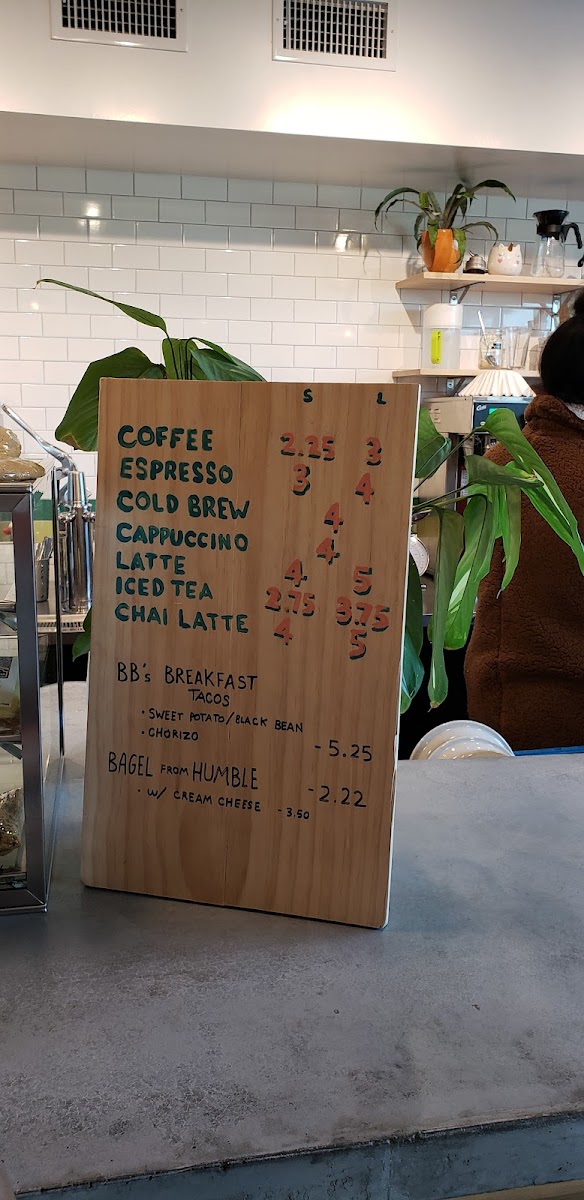 S L
COFFEE 2.25 3
ESPRESSO 3 4
COLD BREW 4
CAPPUCCINO 4
LATTE 4 5
ICED TEA 2.75 3.75
CHAI LATTE 4 5
BB's BREAKFAST
TACOS
• SWEET POTATO/BLACK BEAN
• CHORIZO - 5.25
BAGEL FROM HUMBLE - 2.22
• W/ CREAM CHEESE - 3.50